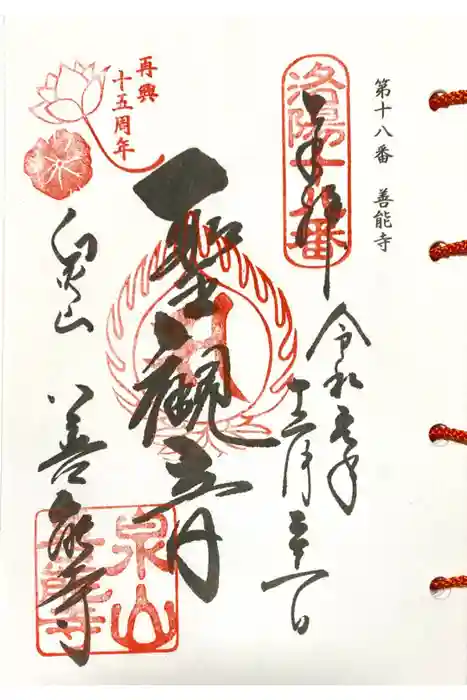 第十八番 善能寺
洛陽十八番
奉拝
令和元年
十二月
聖観音
再興
十五周年
泉山 善能寺
泉山
善能寺